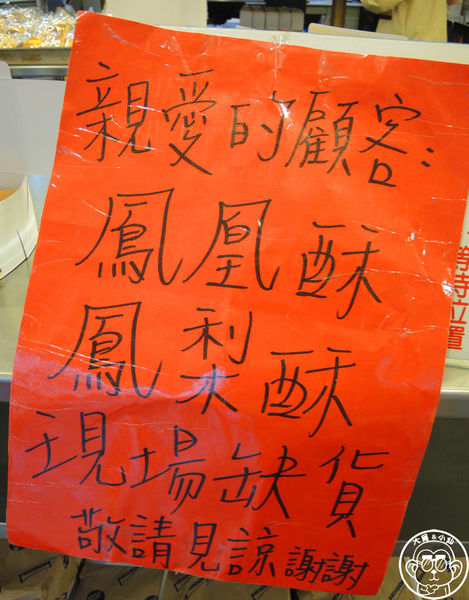 親愛的顧客:
鳳凰酥
鳳梨酥
現場缺貨
敬請見諒 謝謝
等待位置